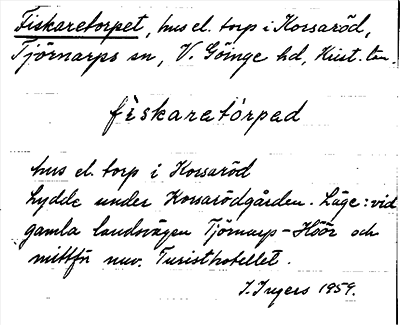 Fiskaretorpet, hus el. torp i Korsaröd,
Tjörnarps sn, V. Göinge hd, Krist. län.
fìskaretòrped
hus el. torp i Korsaröd
Lydde under Korsarödgården. Läge: vid
gamla landsvägen Tjörnarp-Höör och
mittför nuv. Turisthotellet.
I. Ingers 1959.